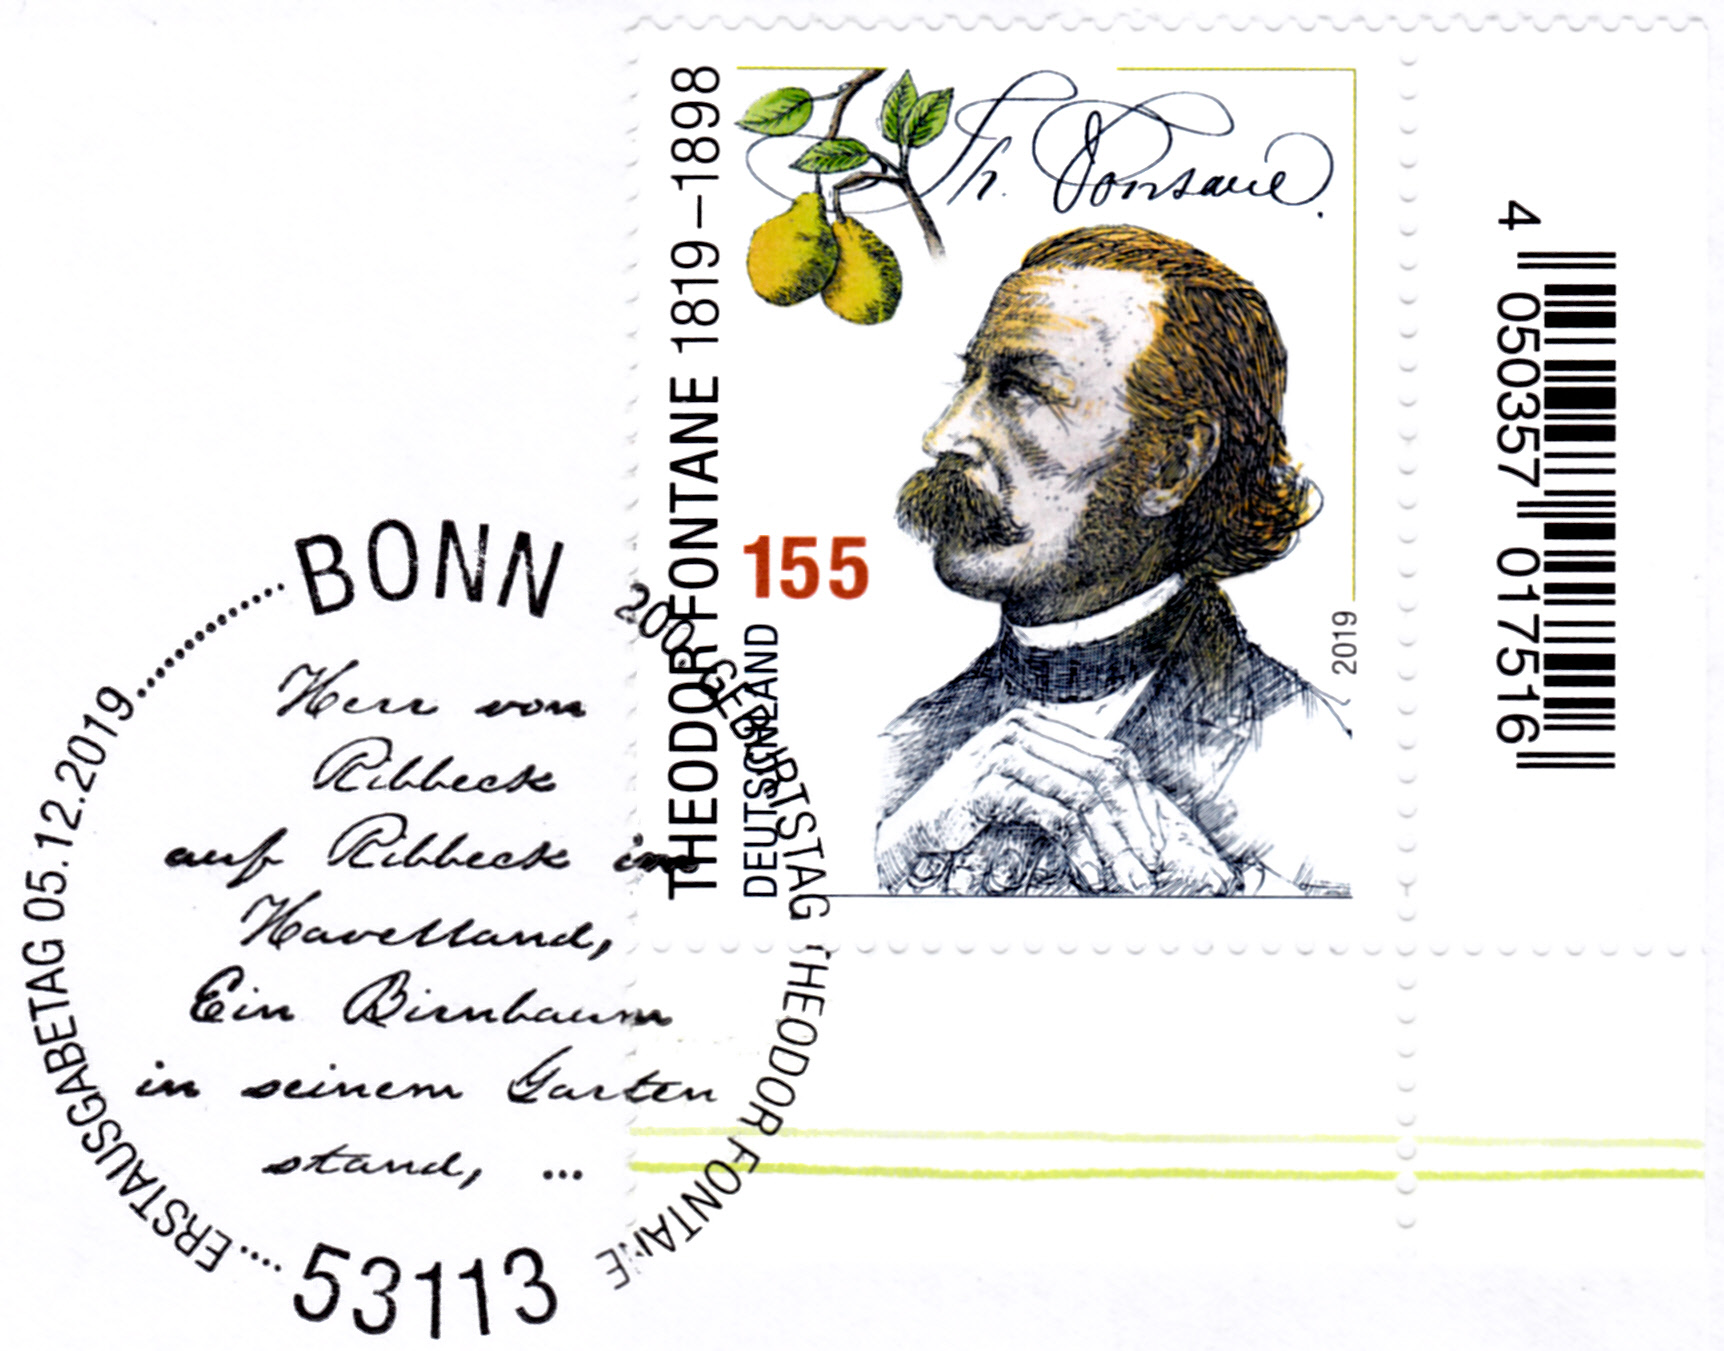 THEODOR FONTANE 1819–1898
Th. Fontane.
155
DEUTSCHLAND
2019
4 050357 017516
BONN
200. GEBURTSTAG THEODOR FONTANE
ERSTAUSGABETAG 05.12.2019
Herr von
Ribbeck
auf Ribbeck im
Havelland,
Ein Birnbaum
in seinem Garten
stand, ...
53113